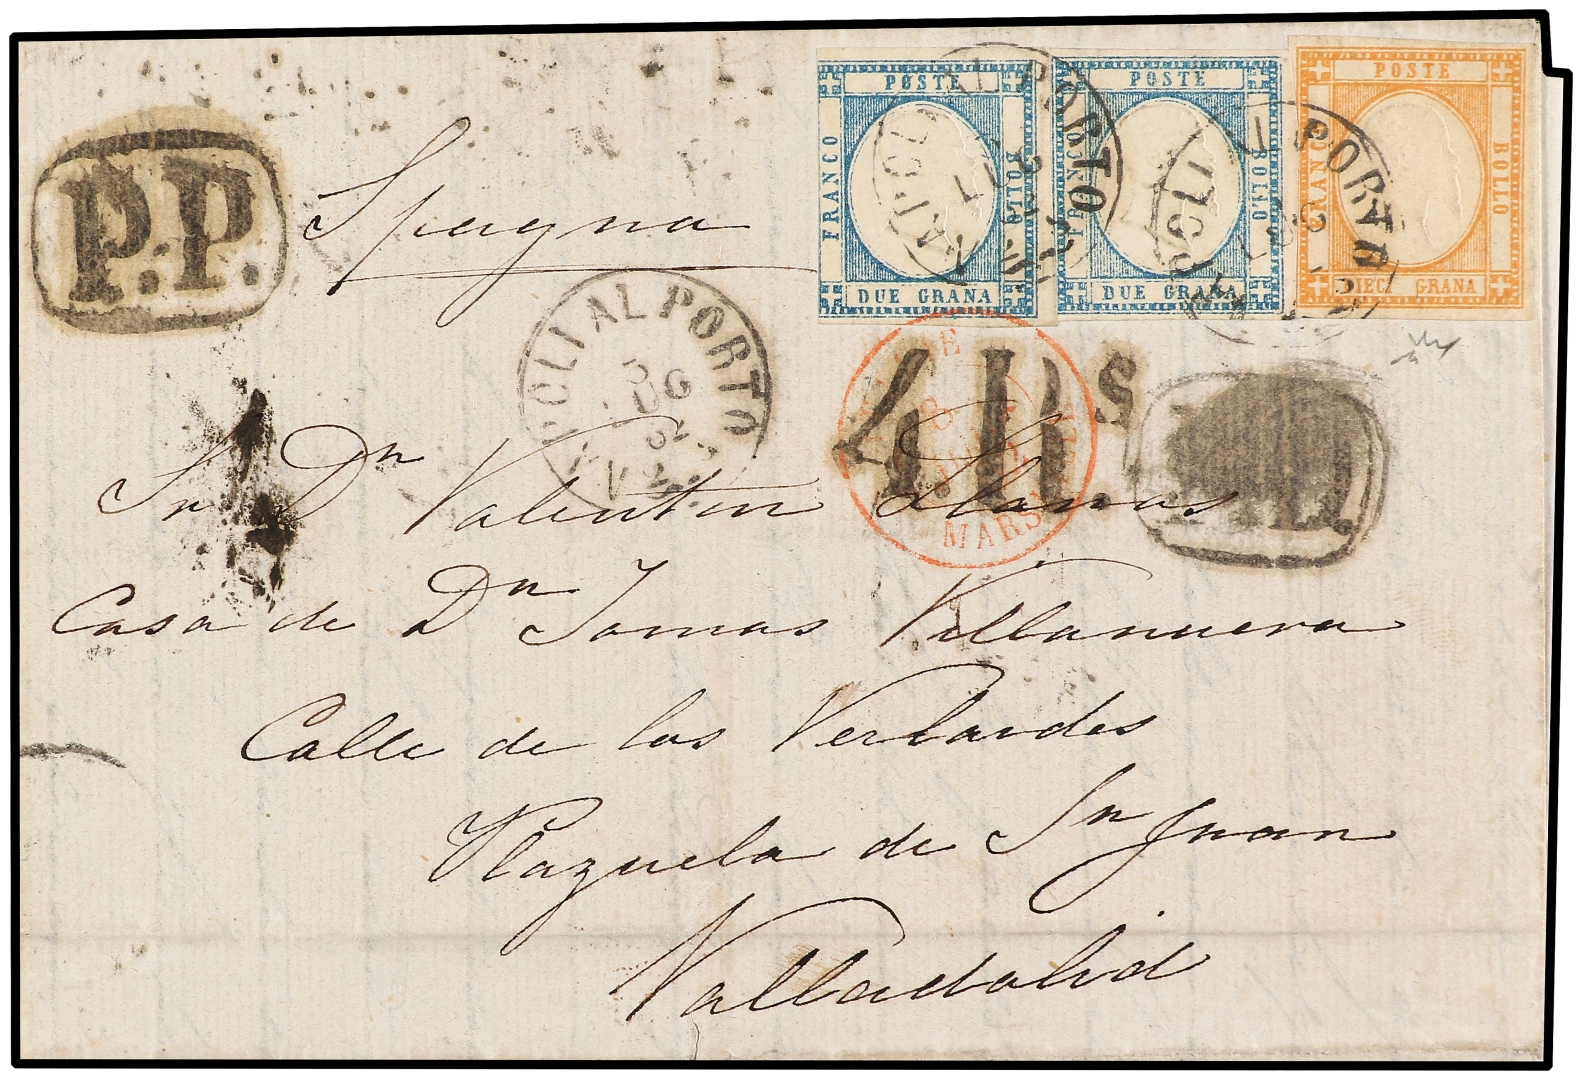 POSTE
FRANCO
BOLLO
DUE GRANA
POSTE
FRANCO
BOLLO
DUE GRANA
POSTE
FRANCO
BOLLO
DIECI GRANA
P.P.
Spagna
AL PORTO
4 Rs
MARS
Sr Dn Valentin Llanos
Casa de Dn Tomas Villanueva
Calle de los Verlardes
Plazuela de Sn Juan
Valladolid